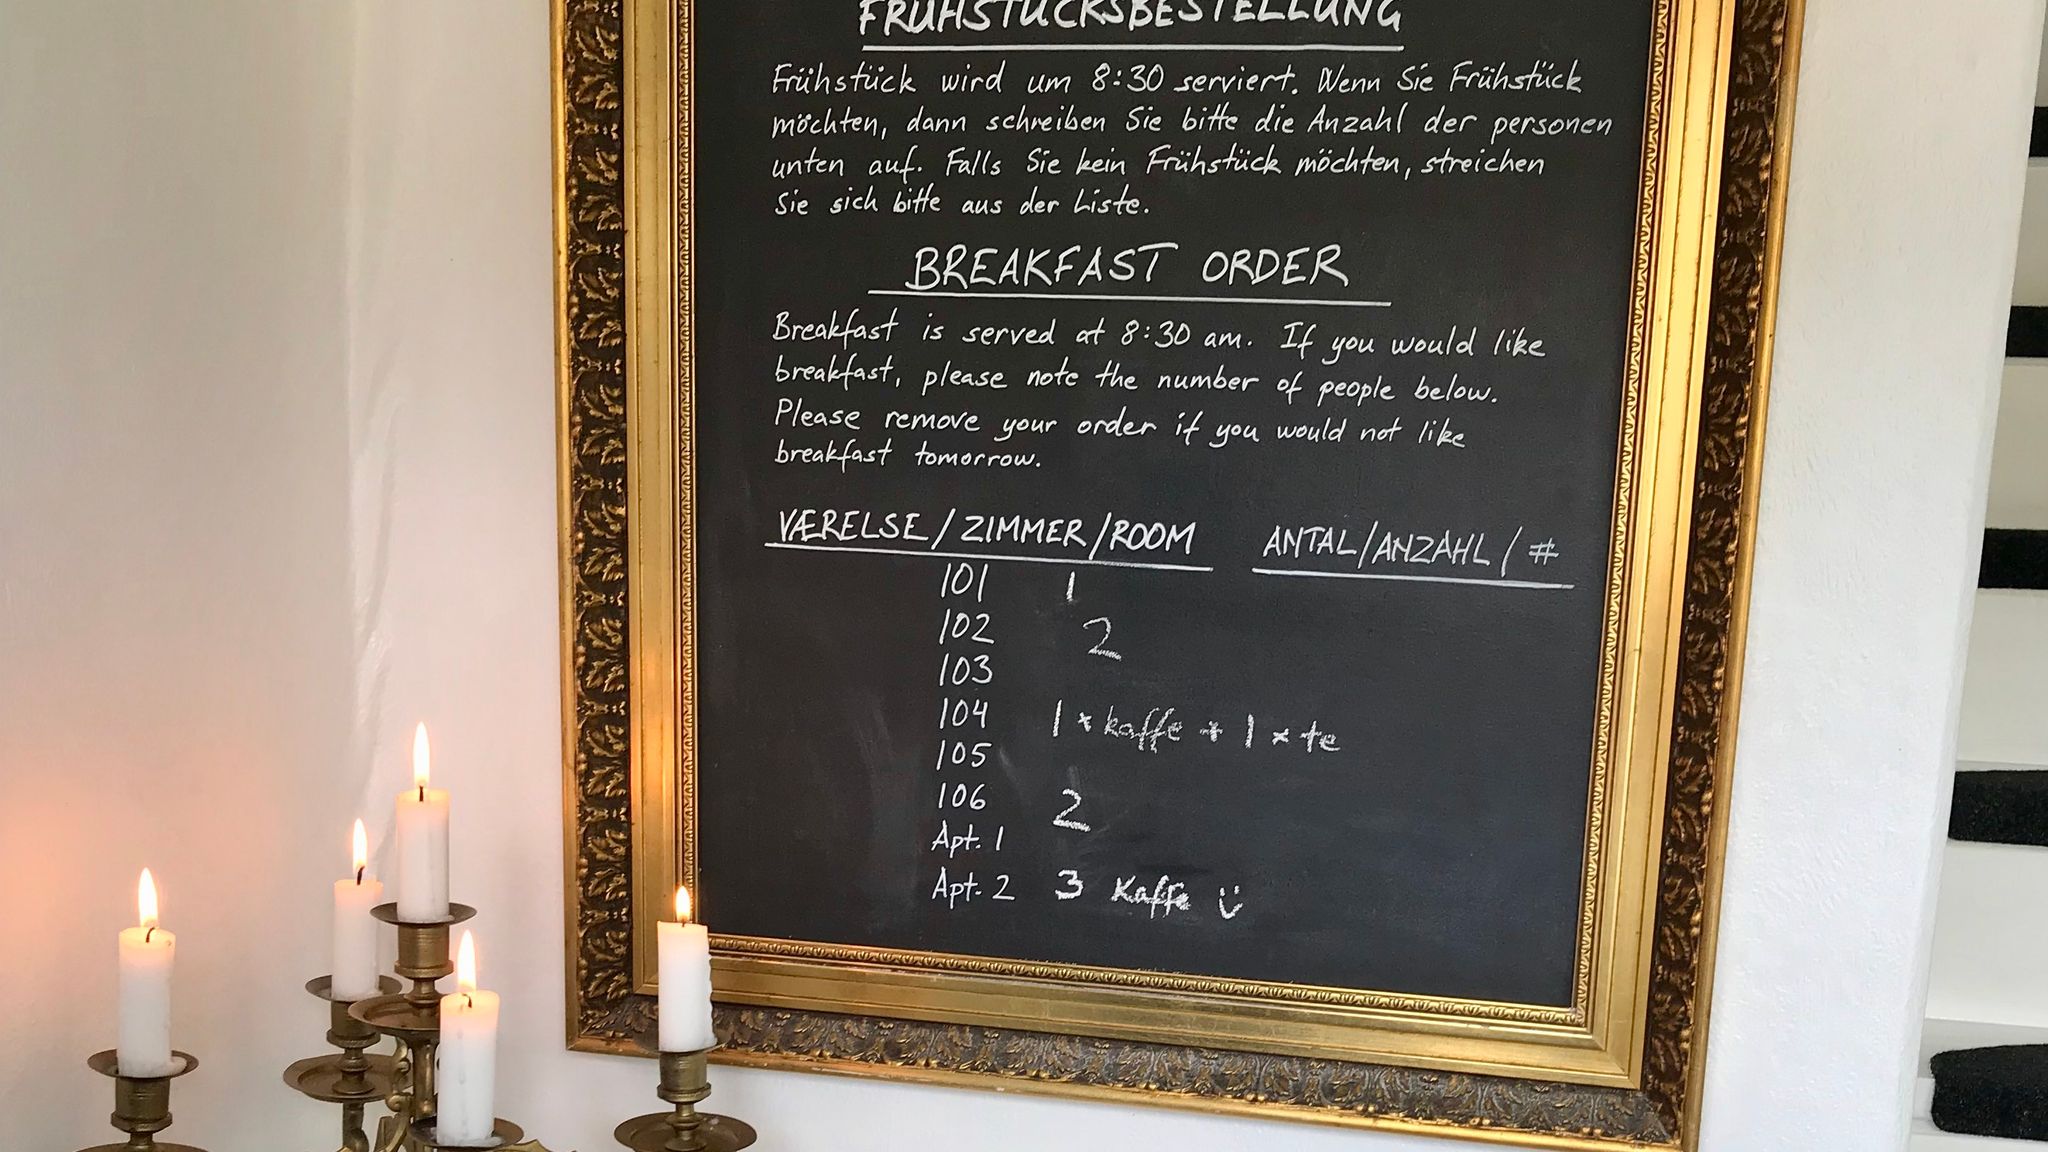 FRÜHSTÜCKSBESTELLUNG
Frühstück wird um 8:30 serviert. Wenn Sie Frühstück
möchten, dann schreiben Sie bitte die Anzahl der personen
unten auf. Falls Sie kein Frühstück möchten, streichen
Sie sich bitte aus der Liste.
BREAKFAST ORDER
Breakfast is served at 8:30 am. If you would like
breakfast, please note the number of people below.
Please remove your order if you would not like
breakfast tomorrow.
VÆRELSE/ZIMMER/ROOM ANTAL/ANZAHL/#
101 1
102 2
103
104 1 x kaffe + 1 x te
105
106 2
Apt. 1
Apt. 2 3 Kaffe :)